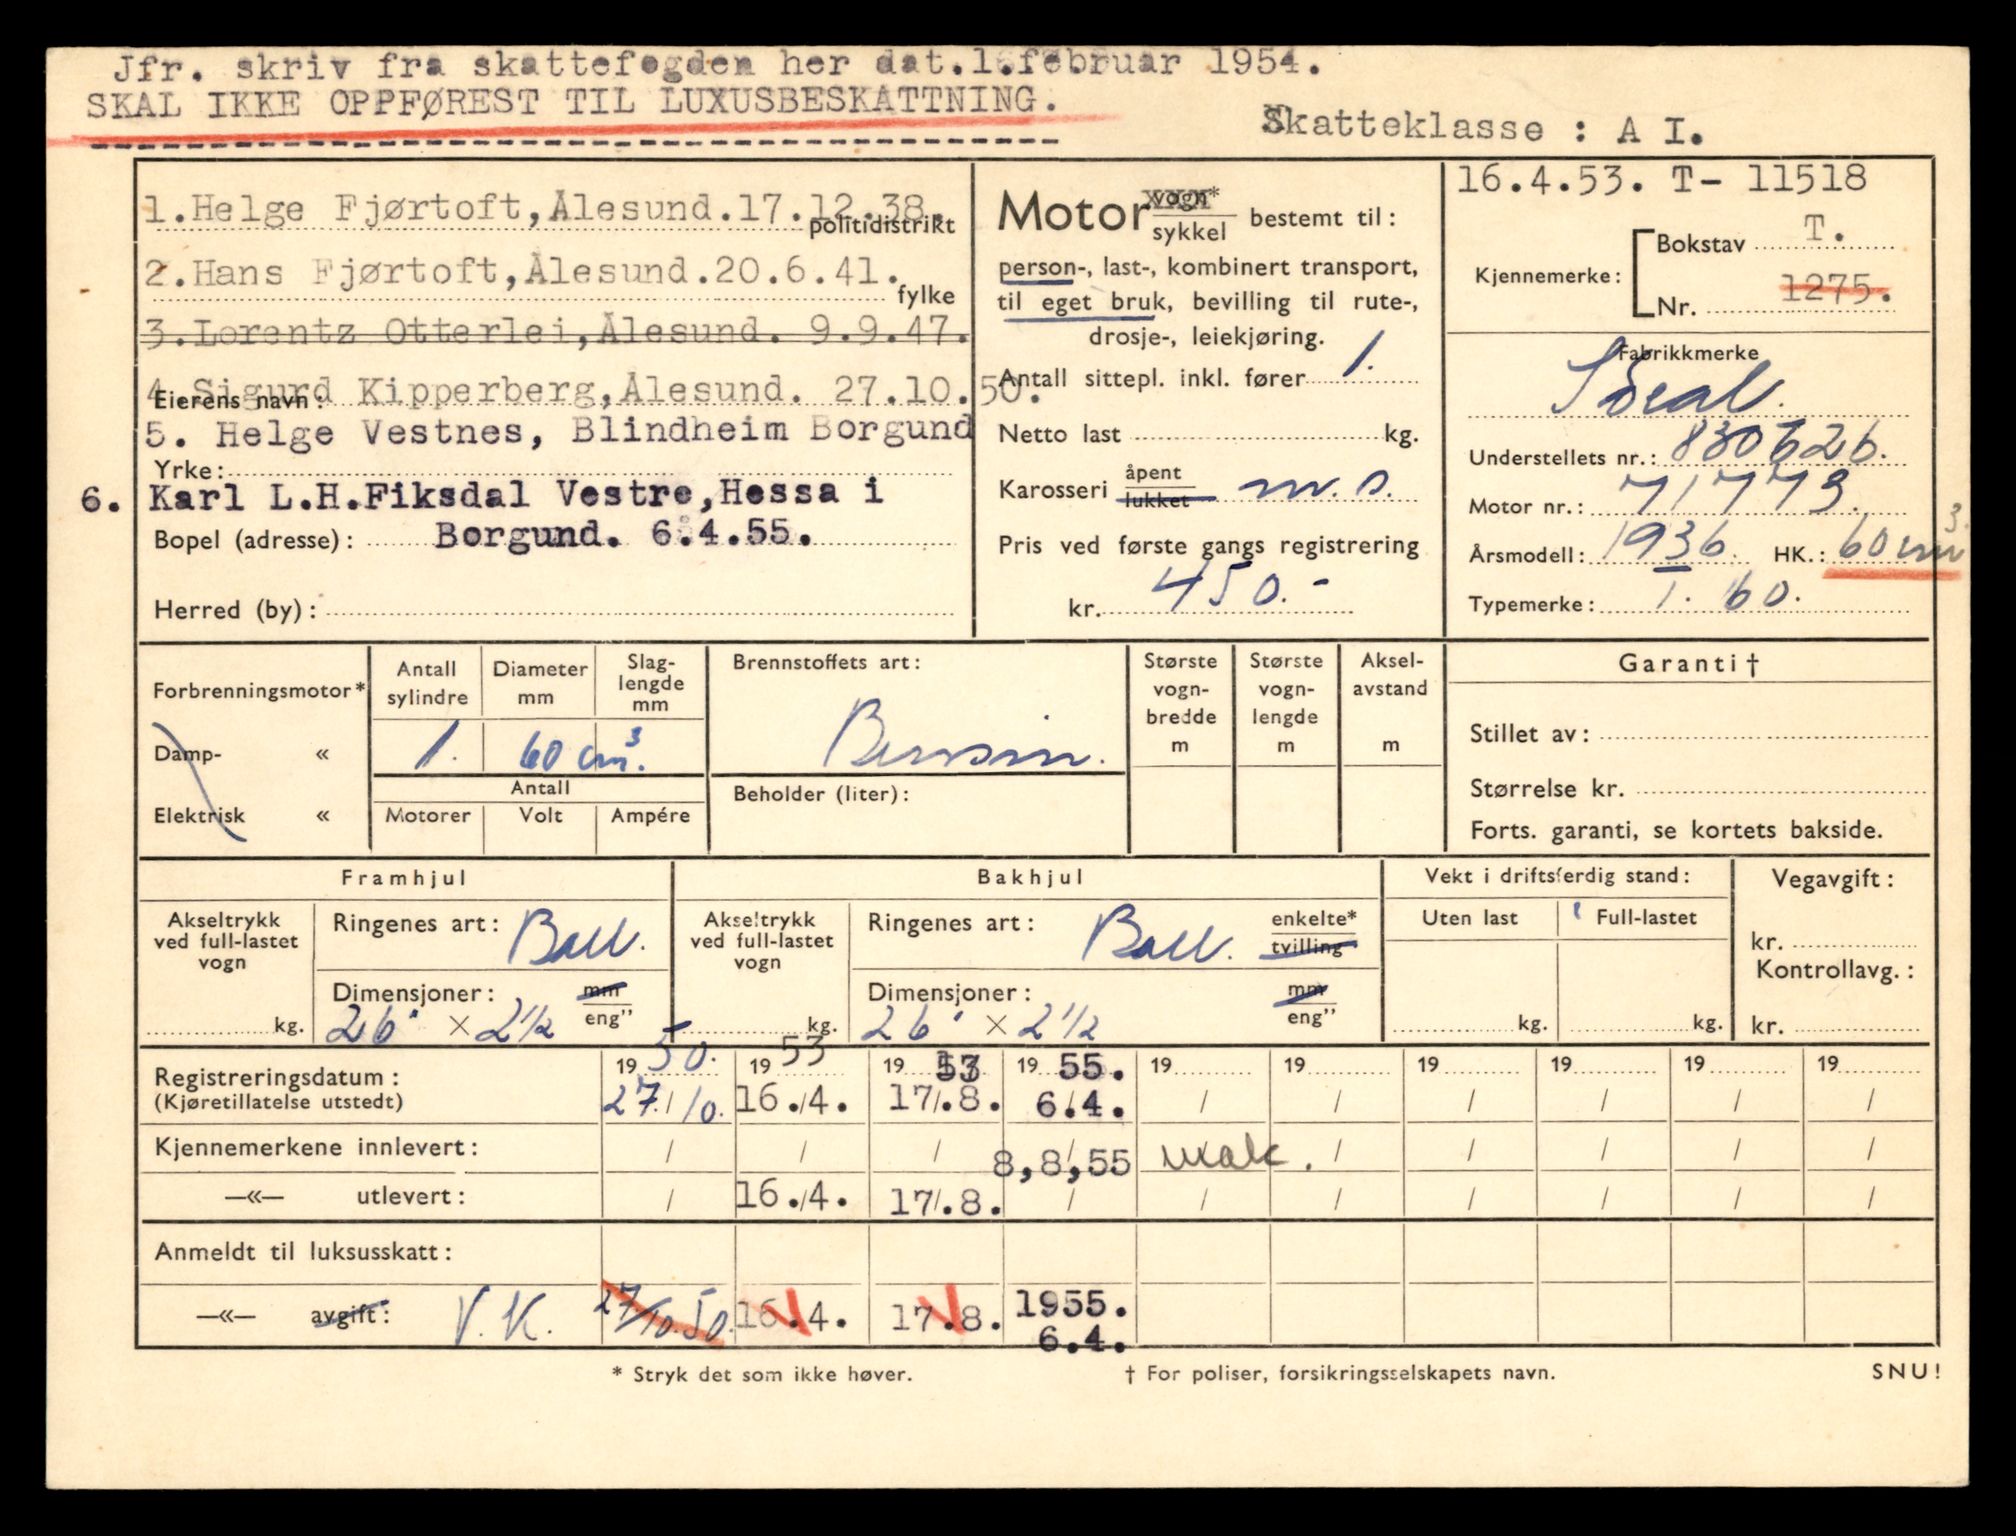 Jfr. skriv fra skattefogden her dat.1.februar 1954.
SKAL IKKE OPPFØREST TIL LUXUSBESKATTNING.
Skatteklasse : A I.
1.Helge Fjørtoft,Ålesund.17.12.38.
politidistrikt
2.Hans Fjørtoft,Ålesund.20.6.41.
fylke
3.Lorentz Otterlei,Ålesund. 9.9.47.
4.Sigurd Kipperberg,Ålesund. 27.10.50.
Eierens navn:
5. Helge Vestnes, Blindheim Borgund
Yrke:
6. Karl L.H.Fiksdal Vestre,Hessa i
Bopel (adresse): Borgund. 6.4.55.
Herred (by):
Motor vogn* sykkel bestemt til:
person-, last-, kombinert transport,
til eget bruk, bevilling til rute-,
drosje-, leiekjøring.
Antall sittepl. inkl. fører 1.
Netto last kg.
Karosseri åpent lukket m.s.
Pris ved første gangs registrering
kr. 450.-
16.4.53. T- 11518
Kjennemerke: Bokstav T.
Nr. 1275.
Fabrikkmerke
Ideal.
Understellets nr.: 830626.
Motor nr.: 71773.
Årsmodell: 1936. HK.: 60 cm3.
Typemerke: 1. 60.
Forbrenningsmotor*
Damp- «
Elektrisk «
Antall sylindre
Diameter mm
Slag-lengde mm
1. 60 cm3.
Antall
Motorer Volt Ampére
Brennstoffets art:
Bensin.
Beholder (liter):
Største vogn-bredde m
Største vogn-lengde m
Aksel-avstand m
Garanti†
Stillet av:
Størrelse kr.
Forts. garanti, se kortets bakside.
Framhjul
Akseltrykk ved full-lastet vogn
kg.
Ringenes art: Ball.
Dimensjoner: mm eng”
26" × 2 1/2
Bakhjul
Akseltrykk ved full-lastet vogn
kg.
Ringenes art: Ball. enkelte* tvilling
Dimensjoner: mm eng”
26" × 2 1/2
Vekt i driftsferdig stand:
Uten last Full-lastet
kg. kg.
Vegavgift:
kr.
Kontrollavg.:
kr.
Registreringsdatum: 19 50. 19 53 19 53 19 55. 19 19 19 19 19 19
(Kjøretillatelse utstedt) 27./10. 16./4. 17/.8. 6/4. / / / / / /
Kjennemerkene innlevert: / / / 8,8,55 / / / / / /
—«— utlevert: / 16./4. 17/.8. / / / / / / /
Anmeldt til luksusskatt:
—«— avgift: V.K. 27/10.50. 16.4. 17.8. 1955. 6.4.
* Stryk det som ikke høver.
† For poliser, forsikringsselskapets navn.
SNU!